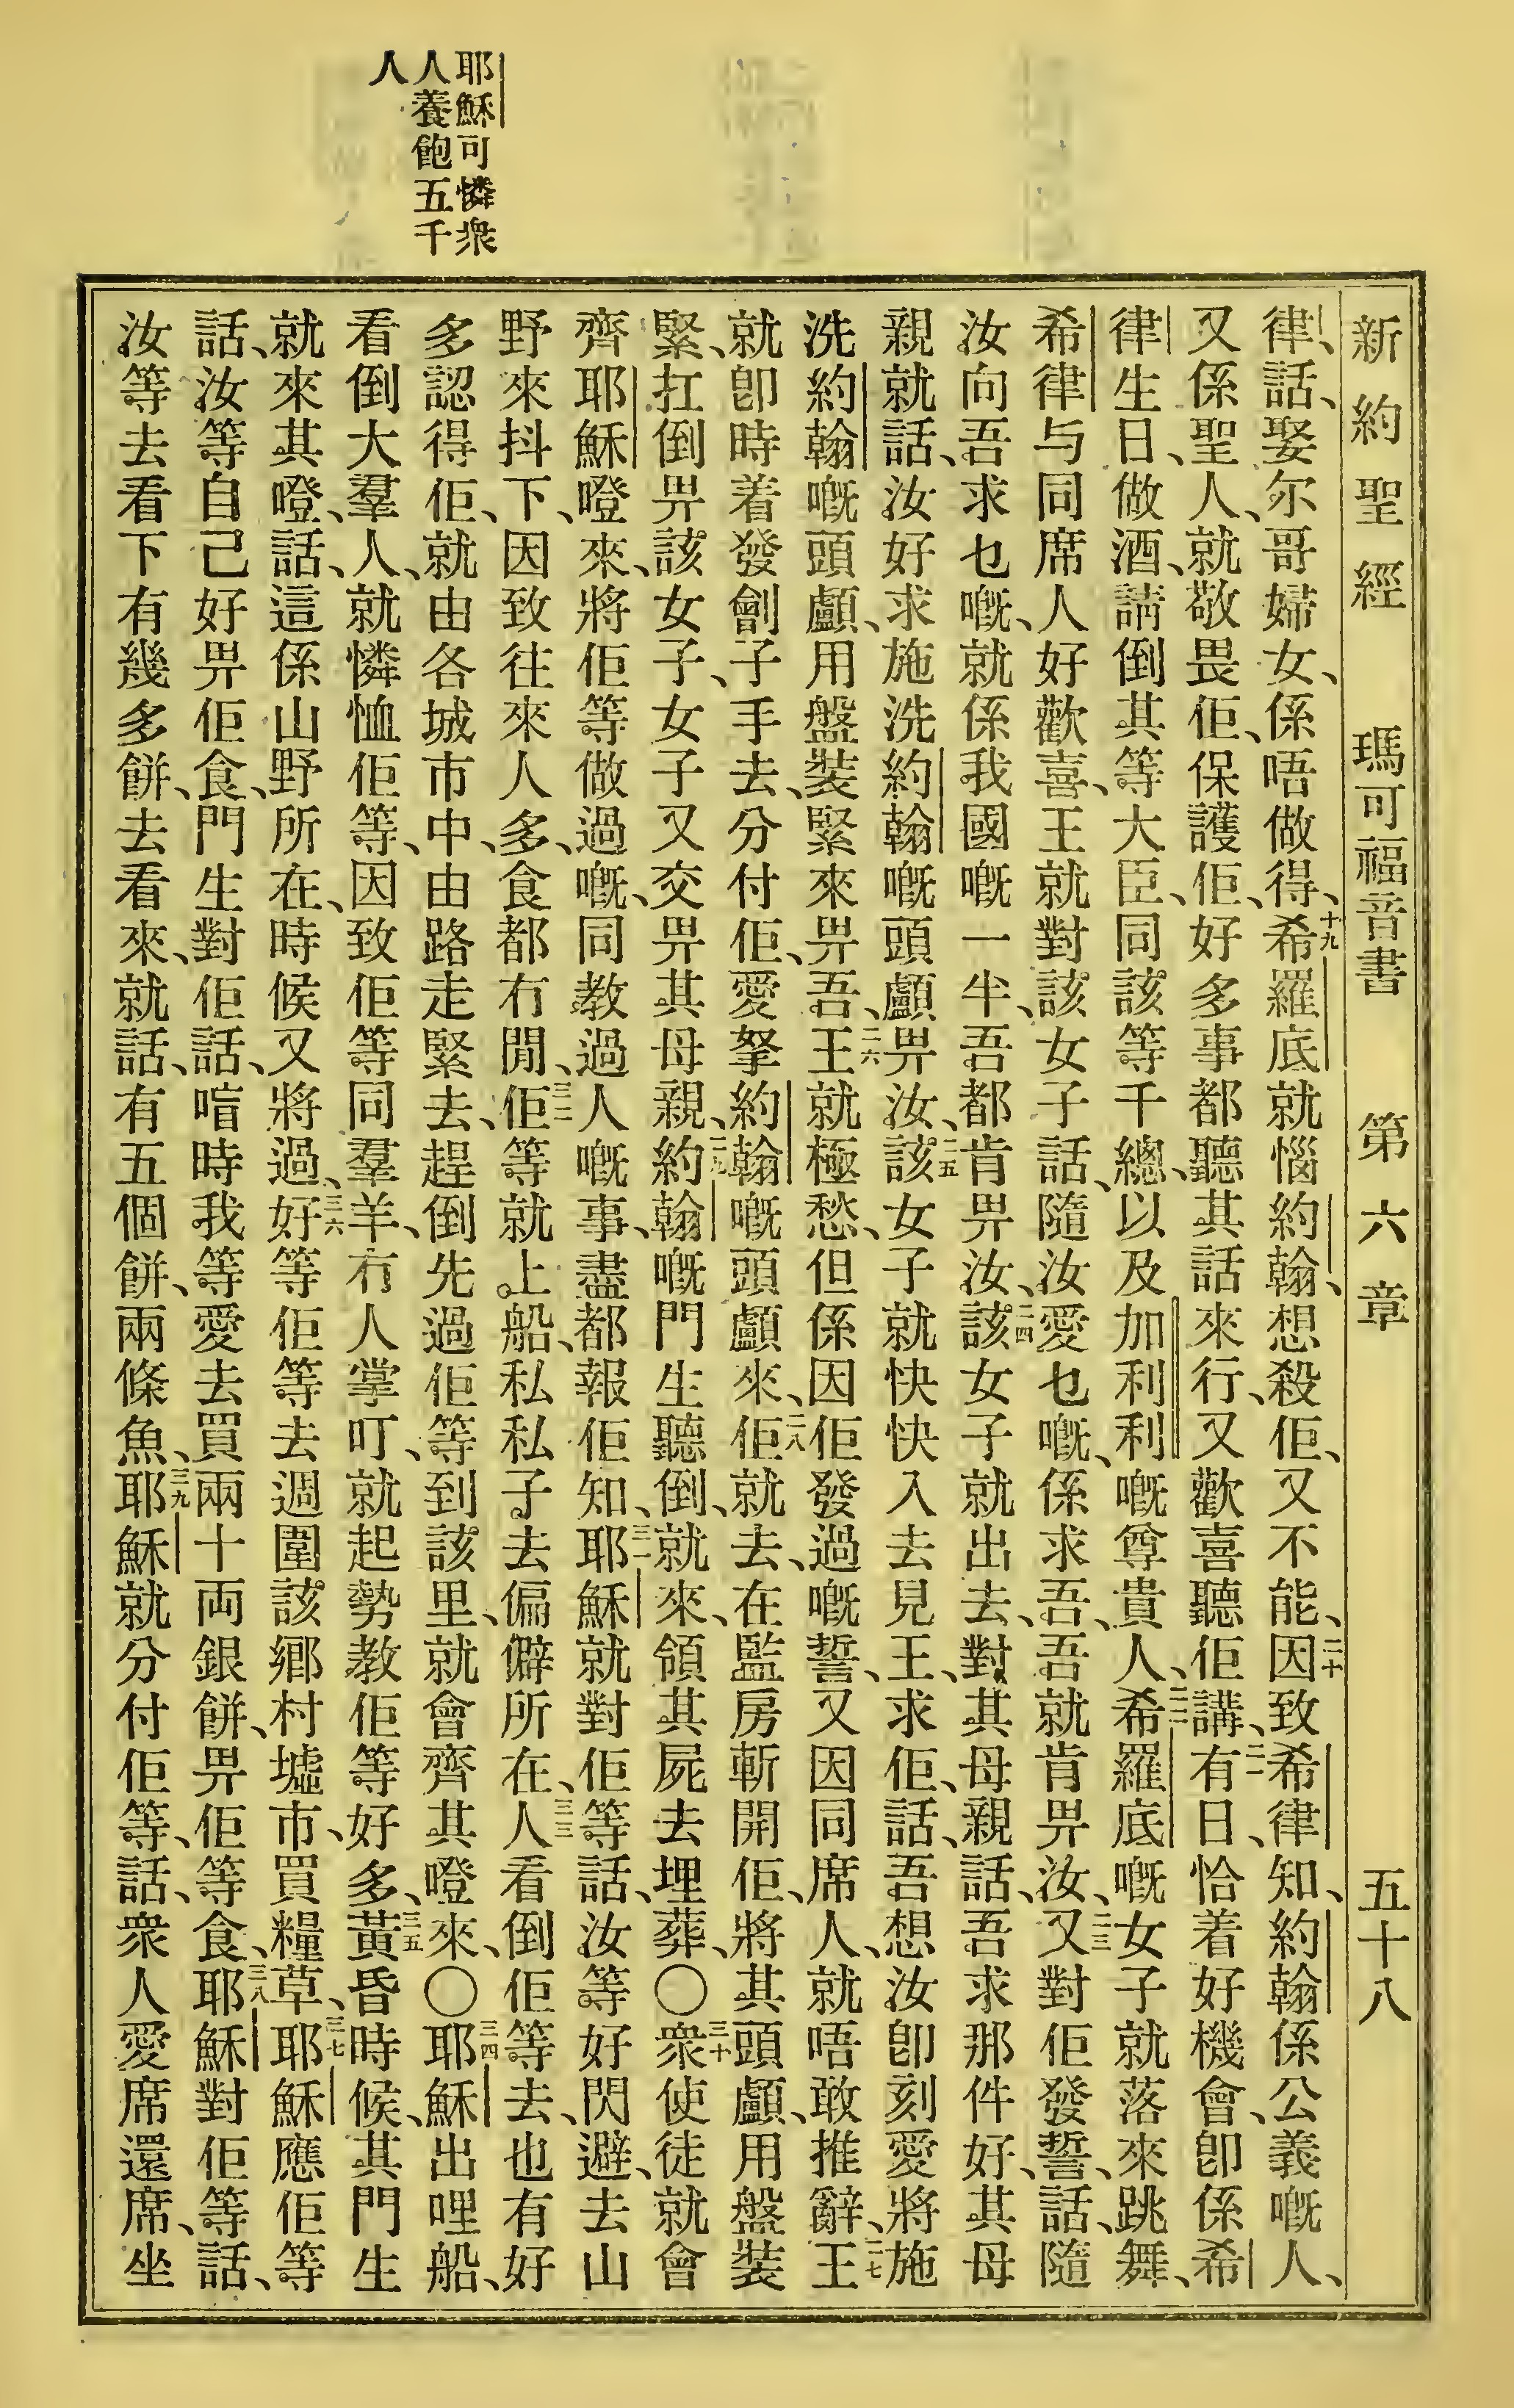 耶穌可憐衆
人養飽五千
人
新約聖經 瑪可福音書 第六章 五十八
律、話、娶尔哥婦女、係唔做得、十九希羅底就惱約翰、想殺佢、又不能、二十因致希律知、約翰係公義嘅人、
又係聖人、就敬畏佢、保護佢、好多事都聽其話來行、又歡喜聽佢講、二一有日、恰着好機會、卽係希
律生日、做酒、請倒其等大臣、同該等千總、以及加利利嘅尊貴人、二二希羅底嘅女子就落來跳舞、
希律与同席人好歡喜、王就對該女子話、隨汝愛乜嘅、係求吾、吾就肯畀汝、二三又對佢發誓、話、隨
汝向吾求乜嘅、就係我國嘅一半、吾都肯畀汝、二四該女子就出去、對其母親話、吾求那件好、其母
親就話、汝好求施洗約翰嘅頭顱畀汝、二五該女子就快快入去見王、求佢、話、吾想汝卽刻愛將施
洗約翰嘅頭顱、用盤裝緊來畀吾、二六王就極愁、但係因佢發過嘅誓、又因同席人、就唔敢推辭、二七王
就卽時着發劊子手去、分付佢、愛拏約翰嘅頭顱來、二八佢就去、在監房斬開佢、將其頭顱、用盤裝
緊、扛倒畀該女子、女子又交畀其母親、二九約翰嘅門生聽倒、就來、領其屍去埋葬、〇三十衆使徒就會
齊耶穌嶝來、將佢等做過嘅、同教過人嘅事、盡都報佢知、三一耶穌就對佢等話、汝等好閃避、去山
野來抖下、因致往來人多、食都冇閒、三二佢等就上船、私私子去偏僻所在、三三人看倒佢等去、也有好
多認得佢、就由各城市中、由路走緊去、趕倒先過佢等到該里、就會齊其嶝來、〇三四耶穌出哩船、
看倒大羣人、就憐恤佢等、因致佢等同羣羊、冇人掌叮、就起勢教佢等好多、三五黃昏時候、其門生
就來其嶝、話、這係山野所在、時候又將過、三六好等佢等去週圍該鄉村墟市、買糧草、三七耶穌應佢等
話、汝等自己好畀佢食、門生對佢話、喑時我等愛去買兩十両銀餅、畀佢等食、三八耶穌對佢等話、
汝等去看下有幾多餅、去看來、就話、有五個餅、兩條魚、三九耶穌就分付佢等、話、衆人愛席還席、坐